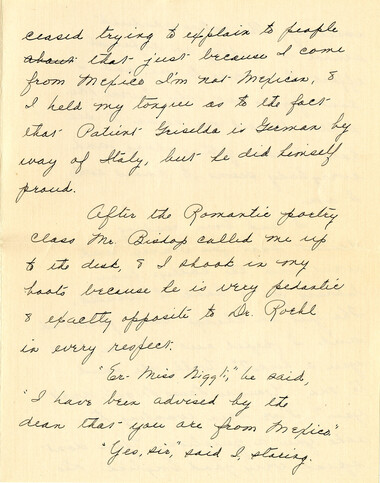 ceased trying to explain to people
about that just because I come
from Mexico I'm not Mexican, &
I held my tongue as to the fact
that Patient Griselda is German by
way of Italy, but he did himself
proud.
After the Romantic poetry
class Mr. Bishop called me up
to the desk, & I shook in my
boots because he is very pedantic
& exactly opposite to Dr. Roehl
in every respect.
"Er- Miss Niggli," he said,
"I have been advised by the
dean that you are from Mexico."
"Yes, sir," said I, staring.